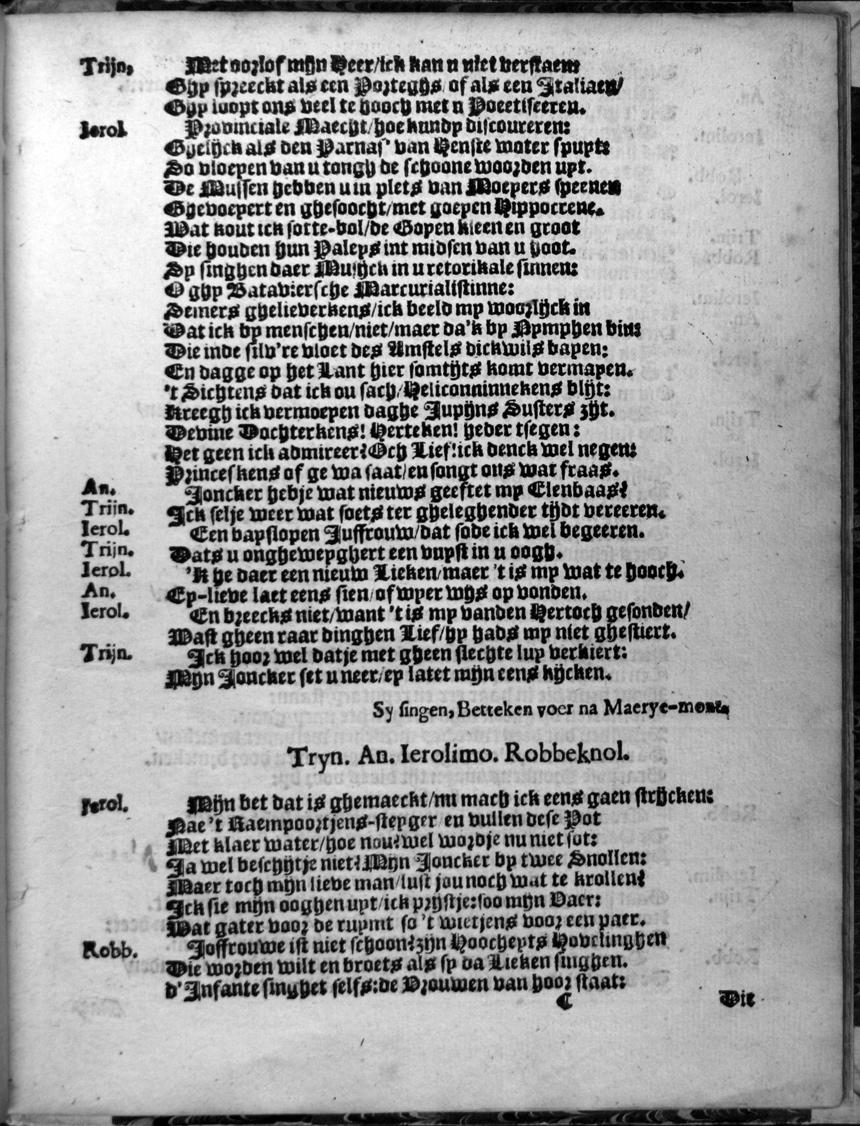 Trijn, Met oorlof mijn Heer/ick kan u niet verstaen:
Ghy spreeckt als een Porteghs/ of als een Italiaen/
Ghy loopt ons veel te hooch met u Poeetiseeren.
Ierol. Provinciale Maecht/hoe kundy discoureren:
Ghelijck als den Parnas' van Henste woter spuyt:
So vloepen van u tongh de schoone woorden uyt.
De Mussen hebben u in plets van Moeyers speenen
Ghevoepert en ghesoocht/met goeyen Hippocrene.
Wat kout ick sotte-bol/de Gopen kleen en groot
Die houden hun Paleys int midsen van u hoot.
Sy singhen daer Musijck in u retorikale sinnen:
O ghy Bataviersche Marcurialistinne:
Semers ghelieverkens/ick beeld my woorlijck in
Dat ick by menschen/niet/maer da'k by Nymphen bin:
Die inde silv're vloet des Amstels dickwils bayen:
En dagge op het Lant hier somtijts komt vermayen.
't Sichtens dat ick ou sach/Heliconninnekens blijt:
Kreegh ick vermoeyen daghe Jupijns Susters zijt.
Devine Dochterkens! Herteken! heder tsegen:
Het geen ick admireer? Och Lief! ick denck wel negen:
Princeskens of ge wa saat/en songt ons wat fraas.
An. Joncker hebje wat nieuws geeftet my Elenbaas?
Trijn. Ick selje weer wat soets ter gheleghender tijdt vereeren.
Ierol. Een bayslopen Juffrouw/dat sode ick wel begeeren.
Trijn. Dats u onghewepghert een vuyst in u oogh.
Ierol. 'K he daer een nieuw Lieken/maer 't is my wat te hooch.
An. Ey-lieve laet eens sien/of wyer wijs op vonden.
Ierol. En breecks niet/want 't is my vanden Hertoch gesonden/
Wast gheen raar dinghen Lief/hy hads my niet ghestiert.
Trijn. Ick hoor wel datje met gheen slechte luy verkiert:
Mijn Joncker set u neer/ey latet mijn eens kijcken.
Sy singen, Betteken voer na Maerye-mont.
Tryn. An. Ierolimo. Robbeknol.
Ierol. Mijn bet dat is ghemaeckt/nu mach ick eens gaen strijcken:
Nae 't Raempoortjens-steyger/en vullen dese Pot
Met klaer water/hoe nou? wel wordje nu niet sot:
Ja wel beschytje niet? Mijn Joncker by twee Snollen:
Maer toch mijn lieve man/lust jou noch wat te krollen?
Ick sie mijn ooghen uyt/ick prijstje: soo mijn Vaer:
Wat gater voor de ruymt so 't wietjens voor een paer.
Robb. Joffrouwe ist niet schoon? zijn Hoocheyts Hovelinghen
Die worden wilt en broets als sy da Lieken singhen.
d'Infante singhet selfs: de Vrouwen van hoor staat:
C Dit